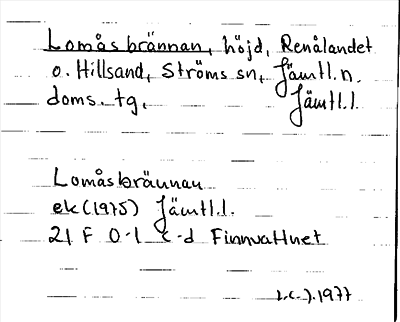 Lomåsbrännan, höjd, Renålandet
o. Hillsand, Ströms sn, Jämtl. n.
doms. tg. Jämtl. l.
Lomåsbrännan
ek (1975) Jämtl. l.
21 F 0-1 c-d Finnvattnet
1977